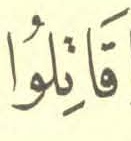 قَاتِلُوا